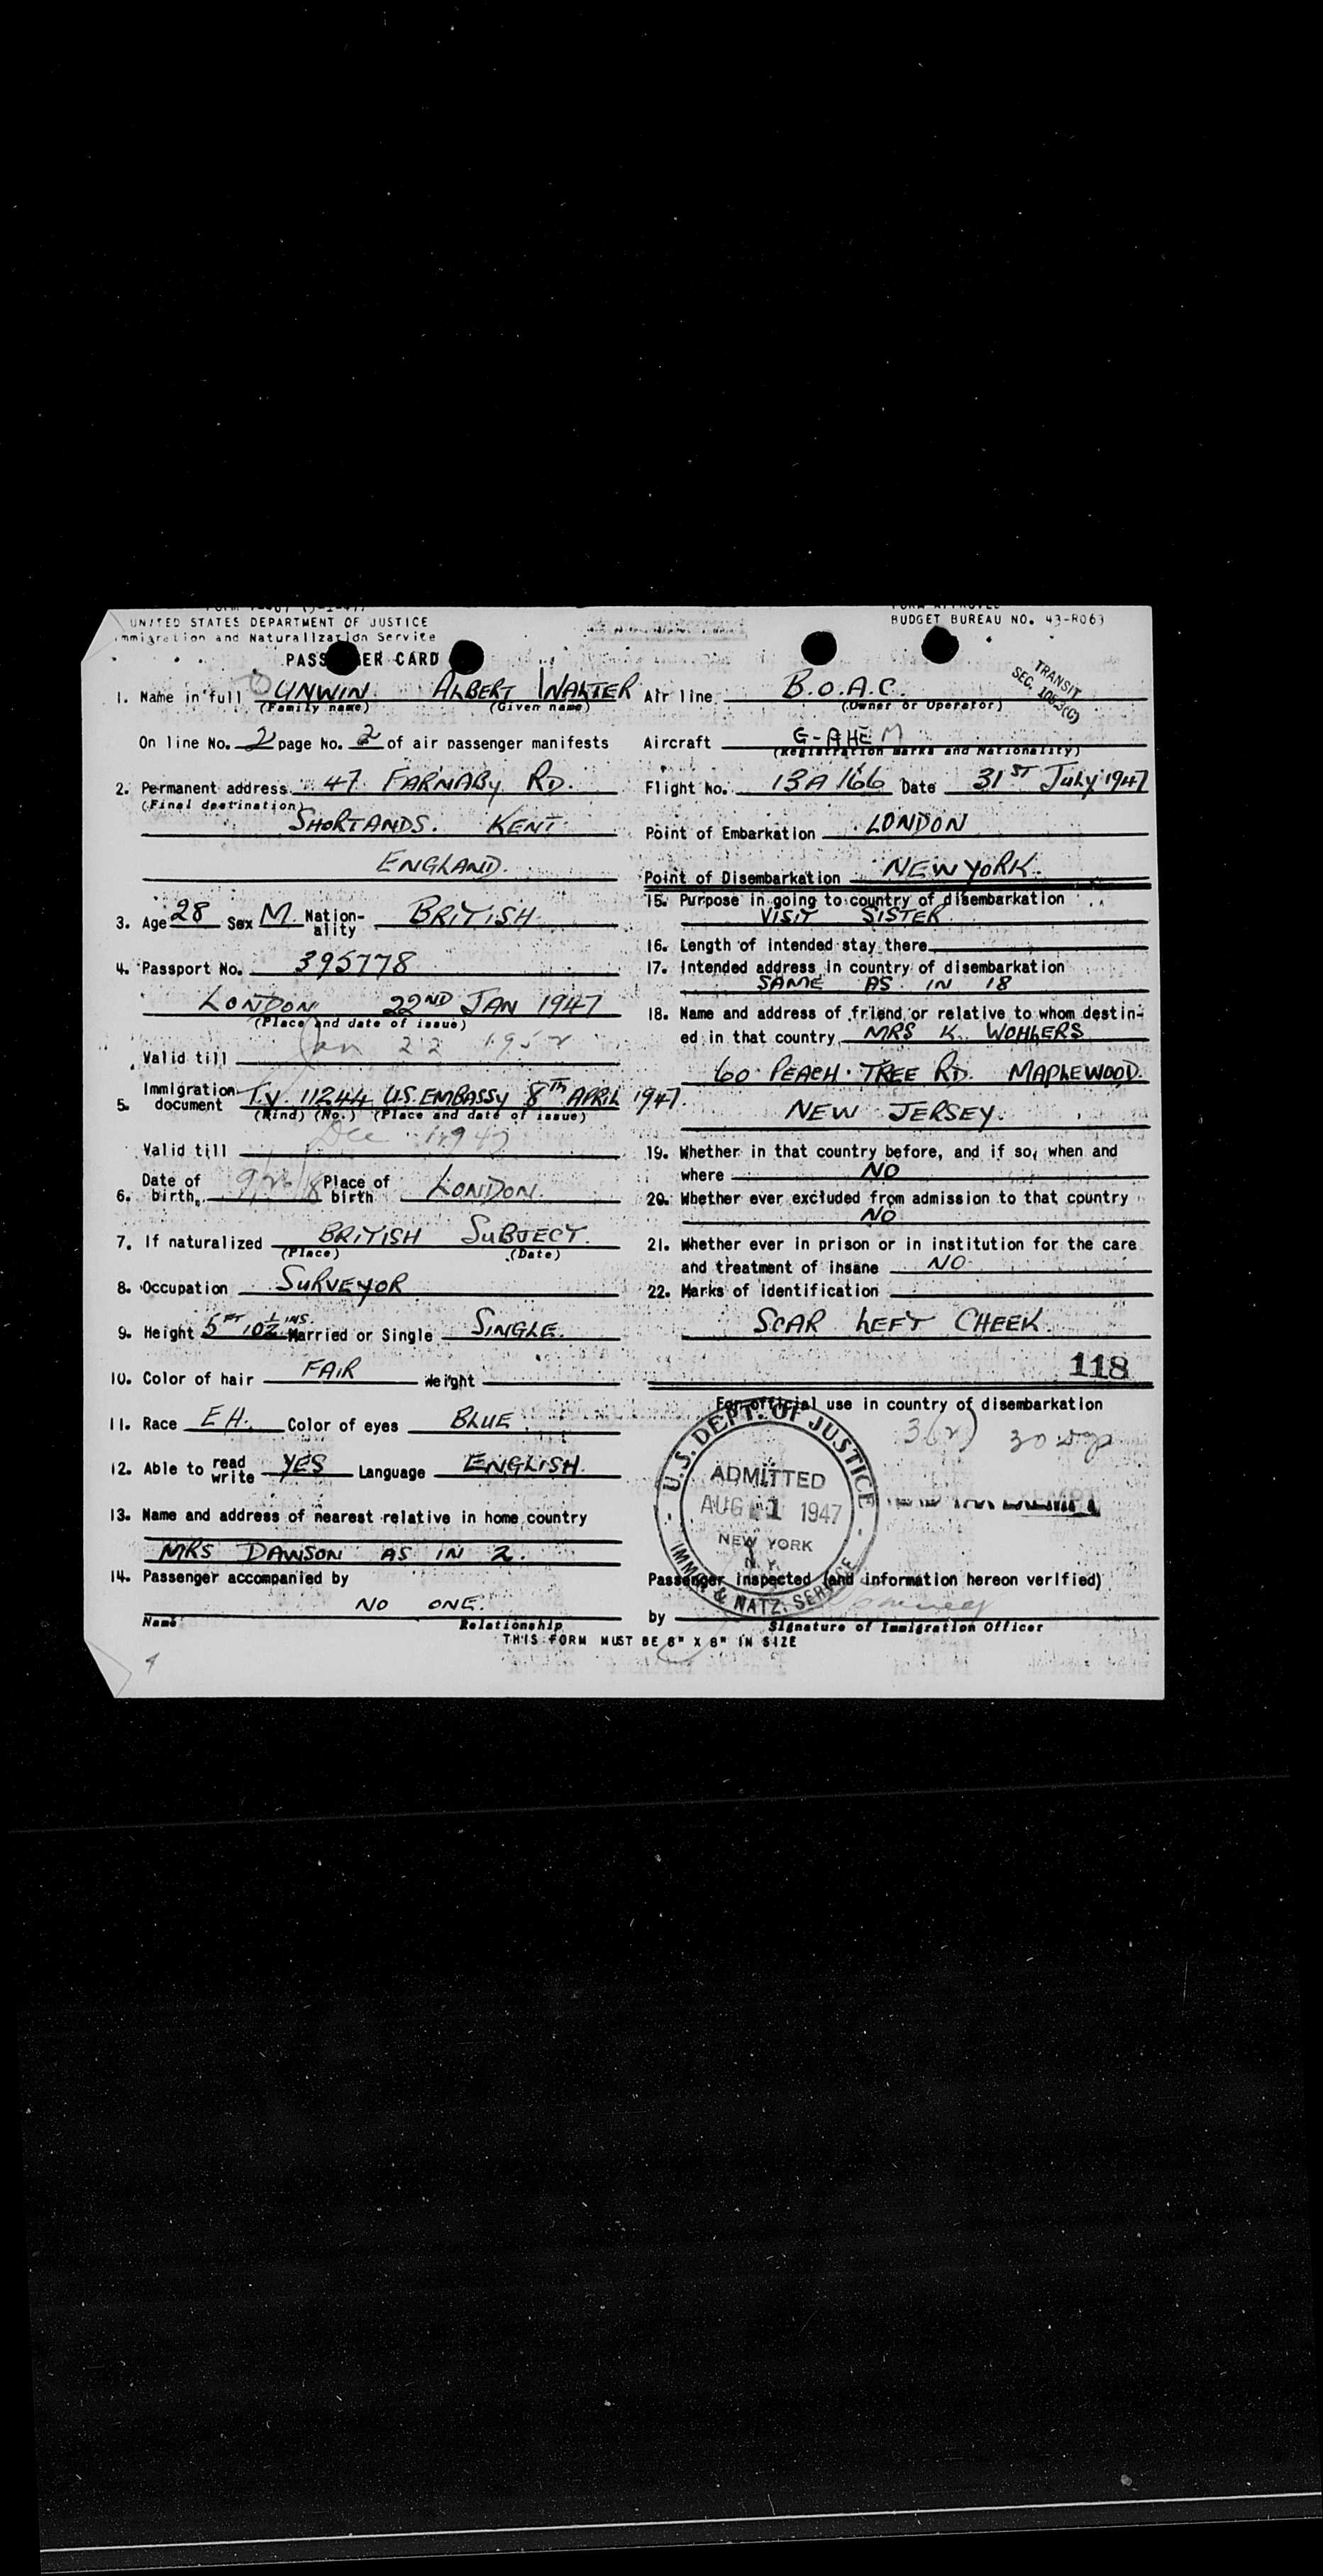 UNITED STATES DEPARTMENT OF JUSTICE
Immigration and Naturalization Service
PASS ER CARD
BUDGET BUREAU NO. 43-R063
TRANSIT
SEC. 105.3(C)
1. Name in full UNWIN. ALBERT WALTER
(Family name) (Given name)
On line No. 2 page No. 2 of air passenger manifests
2. Permanent address 47 FARNABY RD.
(Final destination)
SHORTANDS. KENT
ENGLAND.
3. Age 28 Sex M. Nation-ality BRITISH
4. Passport No. 395778
LONDON 22ND JAN 1947
(Place and date of issue)
Valid till Jan 22 1952
5. Immigration document T.V. 11244 U.S. EMBASSY 8TH APRIL 1947.
(Kind) (No.) (Place and date of issue)
Valid till Dec 1947
6. Date of birth Place of birth LONDON.
7. If naturalized BRITISH SUBJECT.
(Place) (Date)
8. Occupation SURVEYOR
9. Height 5FT 10½ INS. Married or Single SINGLE.
10. Color of hair FAIR Weight
11. Race Color of eyes BLUE
12. Able to read write YES Language ENGLISH.
13. Name and address of nearest relative in home country
MRS DAWSON AS IN 2.
14. Passenger accompanied by
NO ONE.
Name Relationship
Air line B.O.A.C.
(Owner or Operator)
Aircraft G-AHEM
(Registration marks and Nationality)
Flight No. 13A 166 Date 31ST July 1947
Point of Embarkation LONDON
Point of Disembarkation NEW YORK.
15. Purpose in going to country of disembarkation
VISIT SISTER
16. Length of intended stay there
17. Intended address in country of disembarkation
SAME AS IN 18
18. Name and address of friend or relative to whom destin-
ed in that country MRS K. WOHLERS
60 PEACH TREE RD. MAPLEWOOD.
NEW JERSEY.
19. Whether in that country before, and if so, when and
where NO
20. Whether ever excluded from admission to that country
NO
21. Whether ever in prison or in institution for the care
and treatment of insane NO
22. Marks of identification
SCAR LEFT CHEEK.
118
For official use in country of disembarkation
3(2) 30 dys
U.S. DEPT. OF JUSTICE
ADMITTED
AUG 1 1947
NEW YORK
N.Y.
IMM. & NATZ. SERVICE
HEAD TAX EXEMPT
Passenger inspected (and information hereon verified)
by
Signature of Immigration Officer
THIS FORM MUST BE 8" X 8" IN SIZE